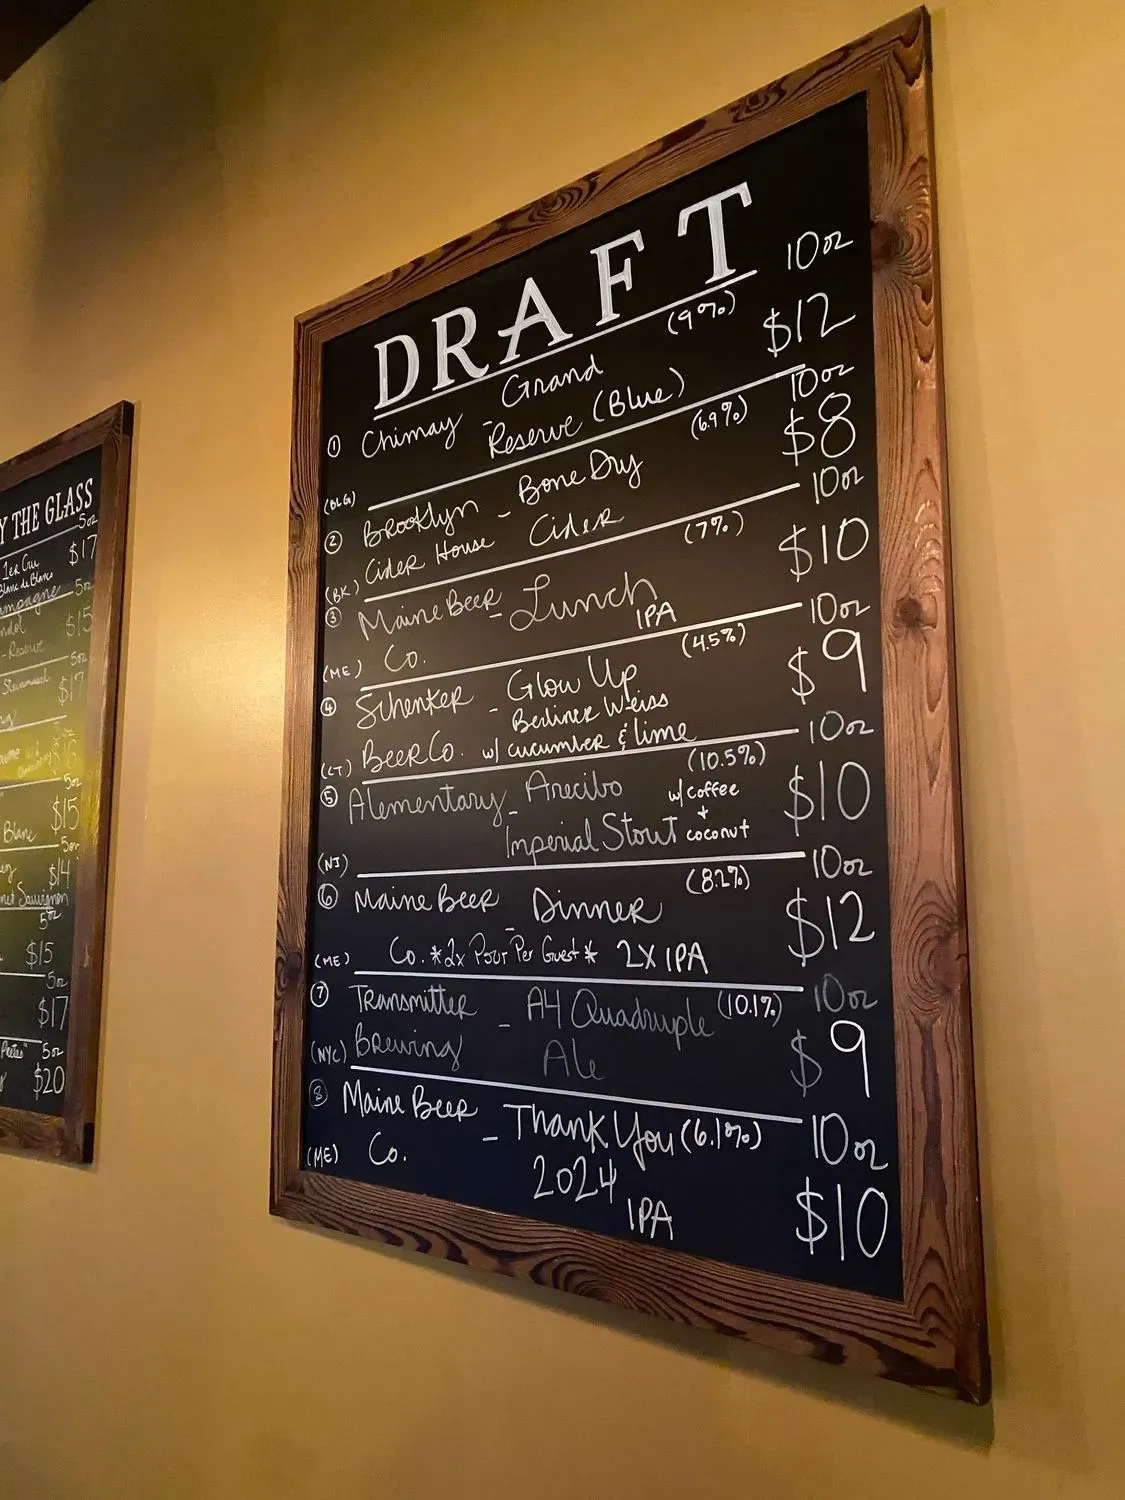 DRAFT
10oz
(9%)
① Chimay - Grand $12
Reserve (Blue)
(BLG)
10oz
(6.9%)
② Brooklyn - Bone Dry $8
Cider House Cider
(BK)
10oz
(7%)
③ Maine Beer - Lunch $10
IPA
(ME) Co.
10oz
(4.5%)
④ Schenker - Glow Up $9
Berliner Weiss
(CT) Beer Co. w/ cucumber & lime
10oz
(10.5%)
⑤ Alementary - Arecibo w/ coffee $10
Imperial Stout + coconut
(NJ)
10oz
(8.2%)
⑥ Maine Beer - Dinner $12
(ME) Co. *2x Pour Per Guest* 2X IPA
10oz
⑦ Transmitter - A4 Quadruple (10.1%)
(NYC) Brewing Ale $9
⑧ Maine Beer - Thank You (6.1%) 10oz
(ME) Co. 2024
IPA $10
Y THE GLASS
5oz
1er Cru $17
Blanc de Blancs
5oz
$15
Reserve
5oz
$17
5oz
$15
Blanc
5oz
$14
Sauvignon
5oz
$15
5oz
$17
5oz
$20